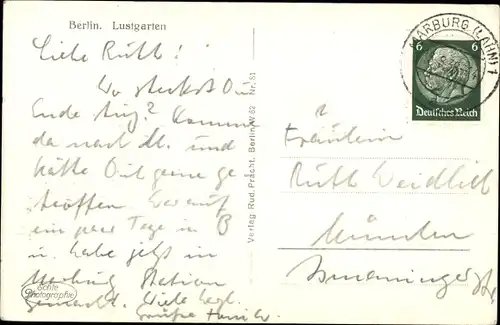 Berlin. Lustgarten
Liebe Ruth!
Wo steckst Du
Ende Aug.? Komme
da nach M. und
hätte Dich gerne ge
troffen. War auf
ein paar Tage in B
u. habe jetzt in
Marburg Station
gemacht. Viele herzl.
Grüsse
Echte
Photographie
Verlag Rud. Pracht, Berlin W 62 Nr. 51
MARBURG (LAHN) 1
6 6
Deutsches Reich
Fräulein
Ruth Weidlich
München
Ismaninger